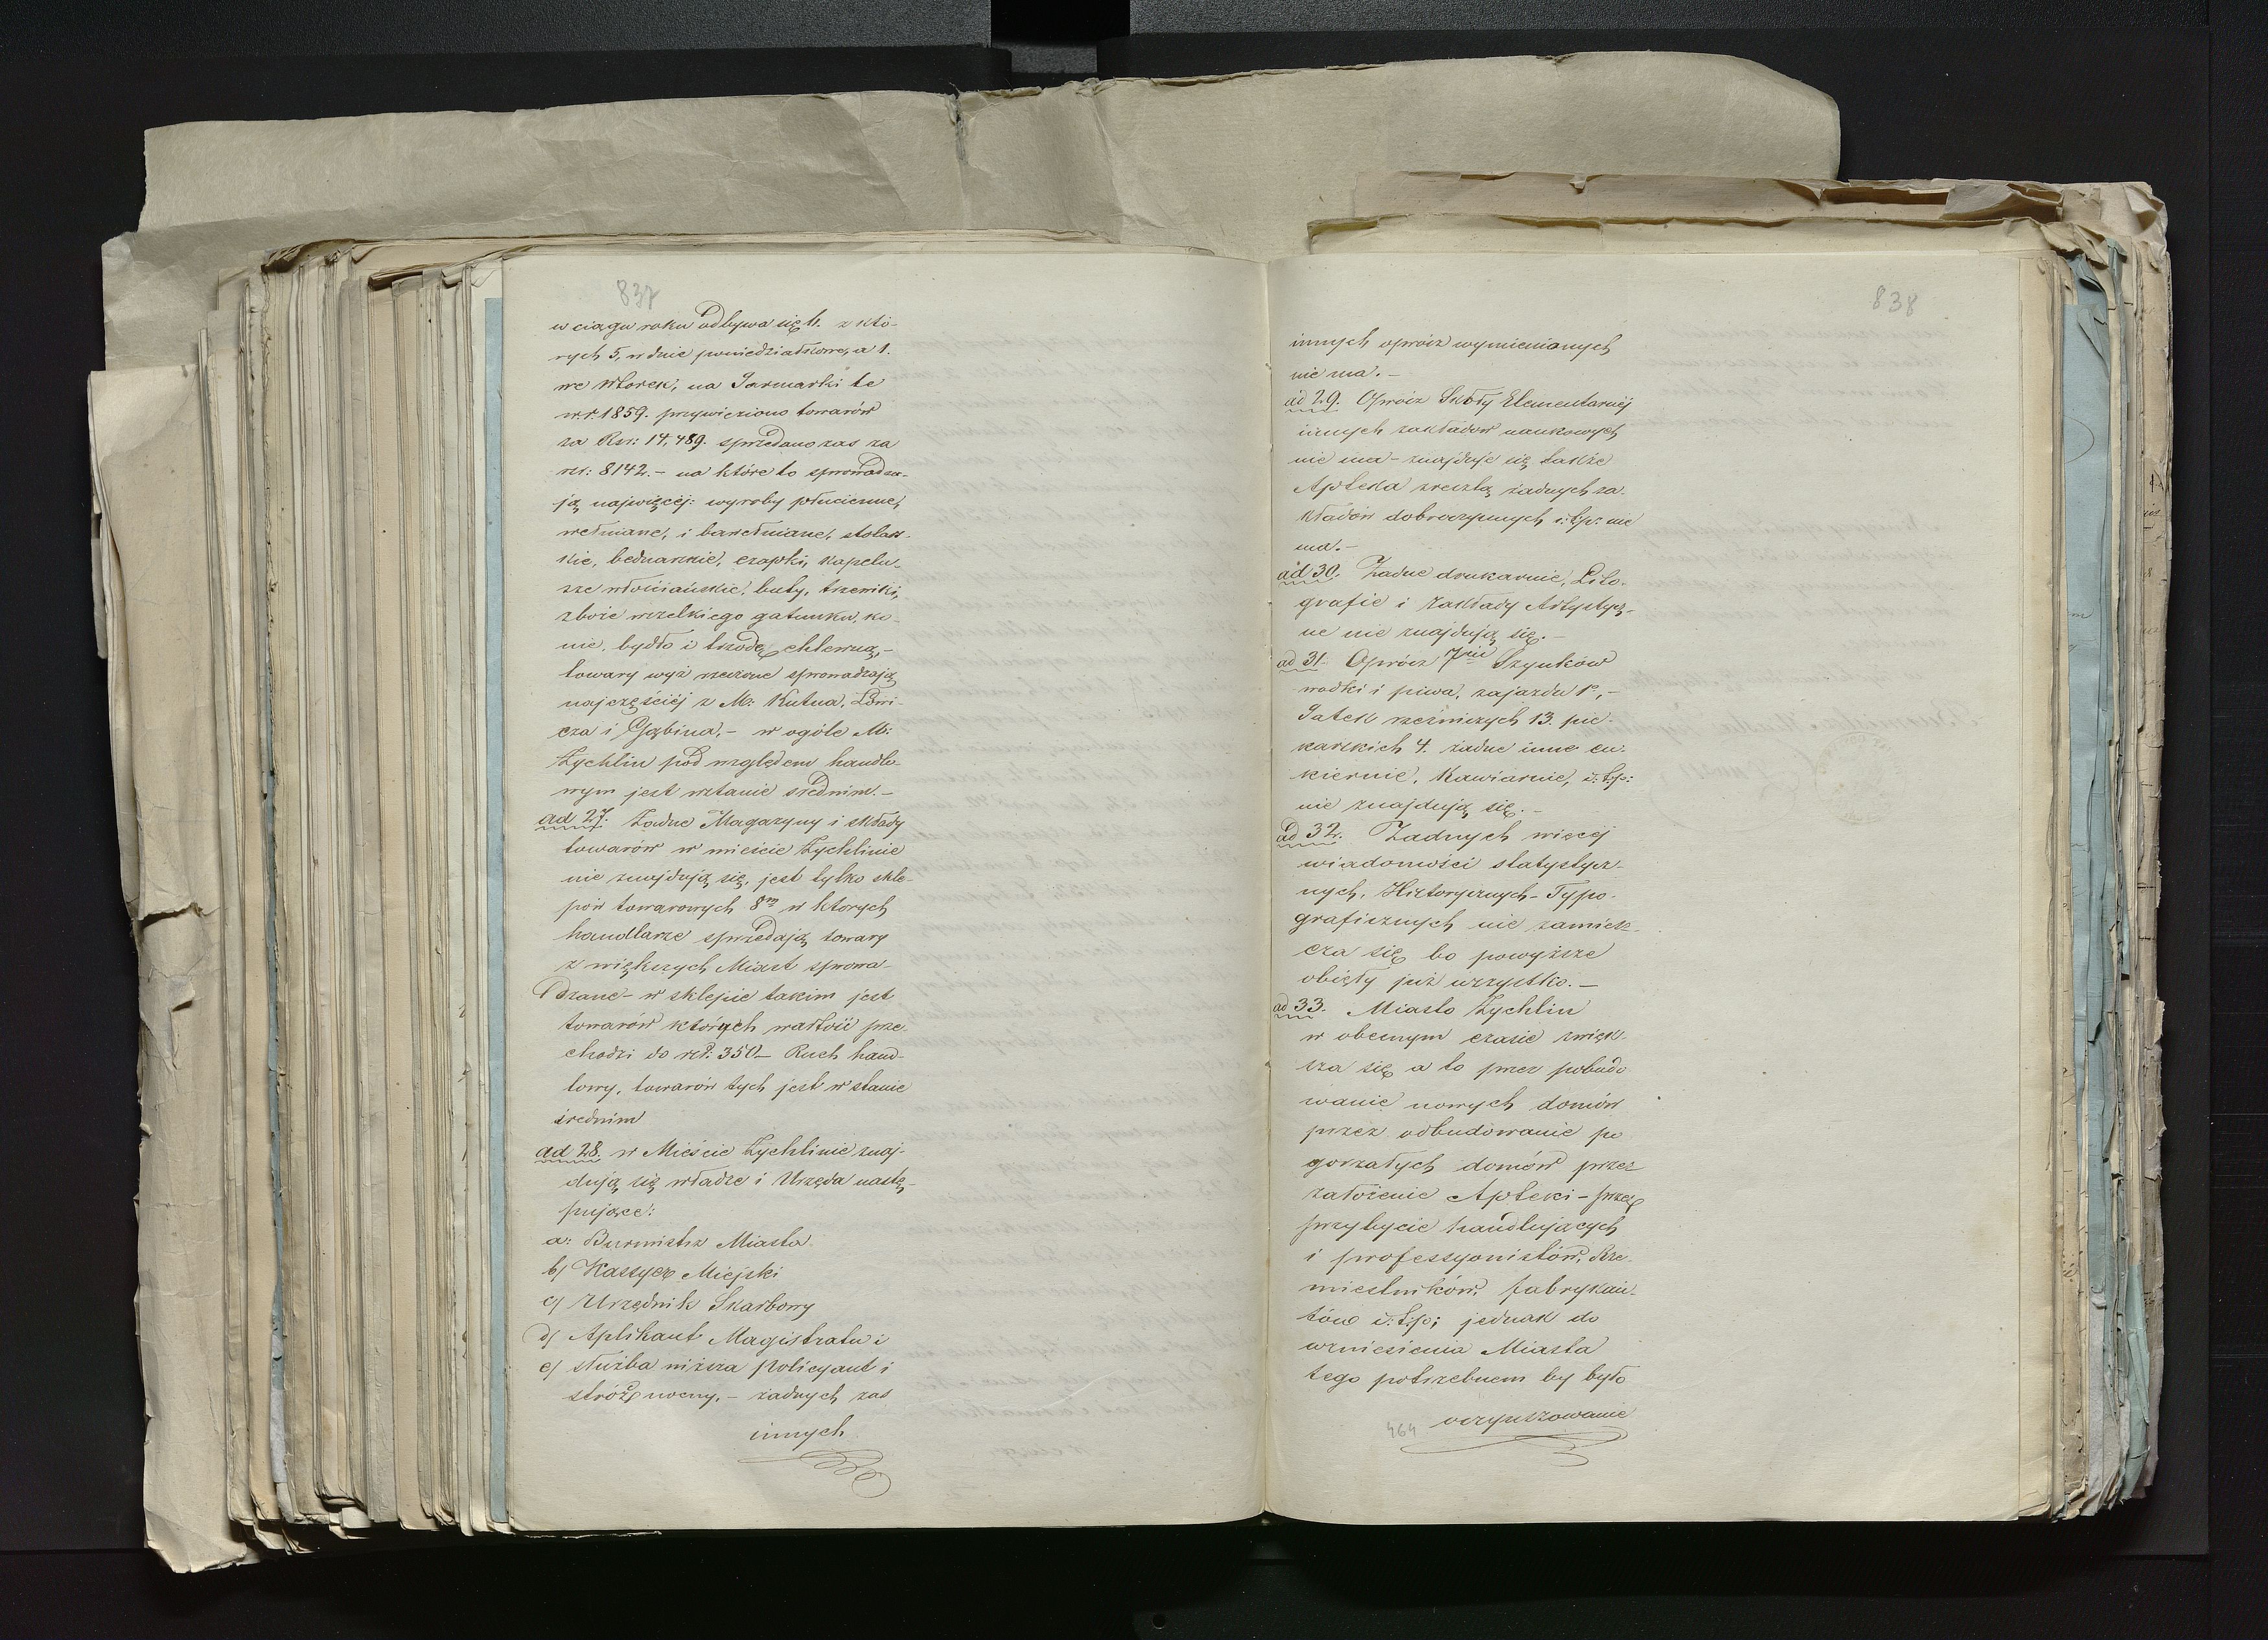 837
w ciągu roku odbywa się 6. z któ-
rych 5, w dnie poniedziałkowe, a 1.
we Wtorek, na Jarmarki te
w r. 1859. przywieziono towarów
za Rsr: 14,489. sprzedano zas za
rsr: 8142. – na które to sprowadza-
ją najwięcéj: wyroby płócienne,
wełniane, i bawełniane, stolar-
skie, bednarskie, czapki, kapelu-
sze włościańskie, buty, trzewiki,
zboże wszelkiego gatunku, ko-
nie, bydło i trzodę chlewną, –
towary wyż rzeczone sprowadzają
najczęściéj z M: Kutna, Łowi-
cza i Gąbina, – w ogóle M:
Żychlin pod względem handlo-
wym jest w stanie średnim. –
ad 27. Żadne Magazyny i składy
towarów w mieście Żychlinie
nie znajdują się, jest tylko skle-
pów towarowych 8m w ktorych
handlarze sprzedają towary
z większych Miast sprowa-
dzane – w sklepie takim jest
towarów których wartość prze-
chodzi do rsr: 350 – Ruch hand-
lowy, towarów tych jest w stanie
średnim
ad 28. w Mieście Żychlinie znaj-
dują się władze i Urzęda nastę-
pujące:
a: Burmistrz Miasta
b) Kassyer Miejski
c) Urzędnik Skarbowy
d) Aplikant Magistratu i
e) służba niższa Policyant i
stróż nocny, – żadnych zas
innych
838
innych oprócz wymienionych
nie ma. –
ad 29. Oprócz Skoły Elementarnéj
innych zakładów naukowych
nie ma – znajduje się także
Apteka zresztą żadnych za-
kładów dobroczynnych i: t:p: nie
ma. –
ad 30. Żadne drukarnie, Lito-
grafie i zakłady Artystycz-
ne nie znajdują się. –
ad 31. Oprócz 7miu Szynków
wodki i piwa, zajazdu 1o, –
Jatek rzeźniczych 13. pie-
karskich 4. żadne inne cu-
kiernie, Kawiarnie, i: t:p:
nie znajdują się. –
ad 32. Żadnych więcej
wiadomości statystycz-
nych, Historycznych – Typo-
graficznych nie zamiesz-
cza się bo powyższe
obięły już wszystko. –
ad 33. Miasto Żychlin
w obecnym czasie zwięk-
sza się a to przez pobudo
wanie nowych domów
przez odbudowanie po
gorzałych domów przez
założenie Apteki – przez
przybycie handlujących
i professyonistów, Rze-
mieslników, fabrykan-
tów i: t:p: jednak do
wzniesienia Miasta
tego potrzebnem by było
oczynszowanie
464